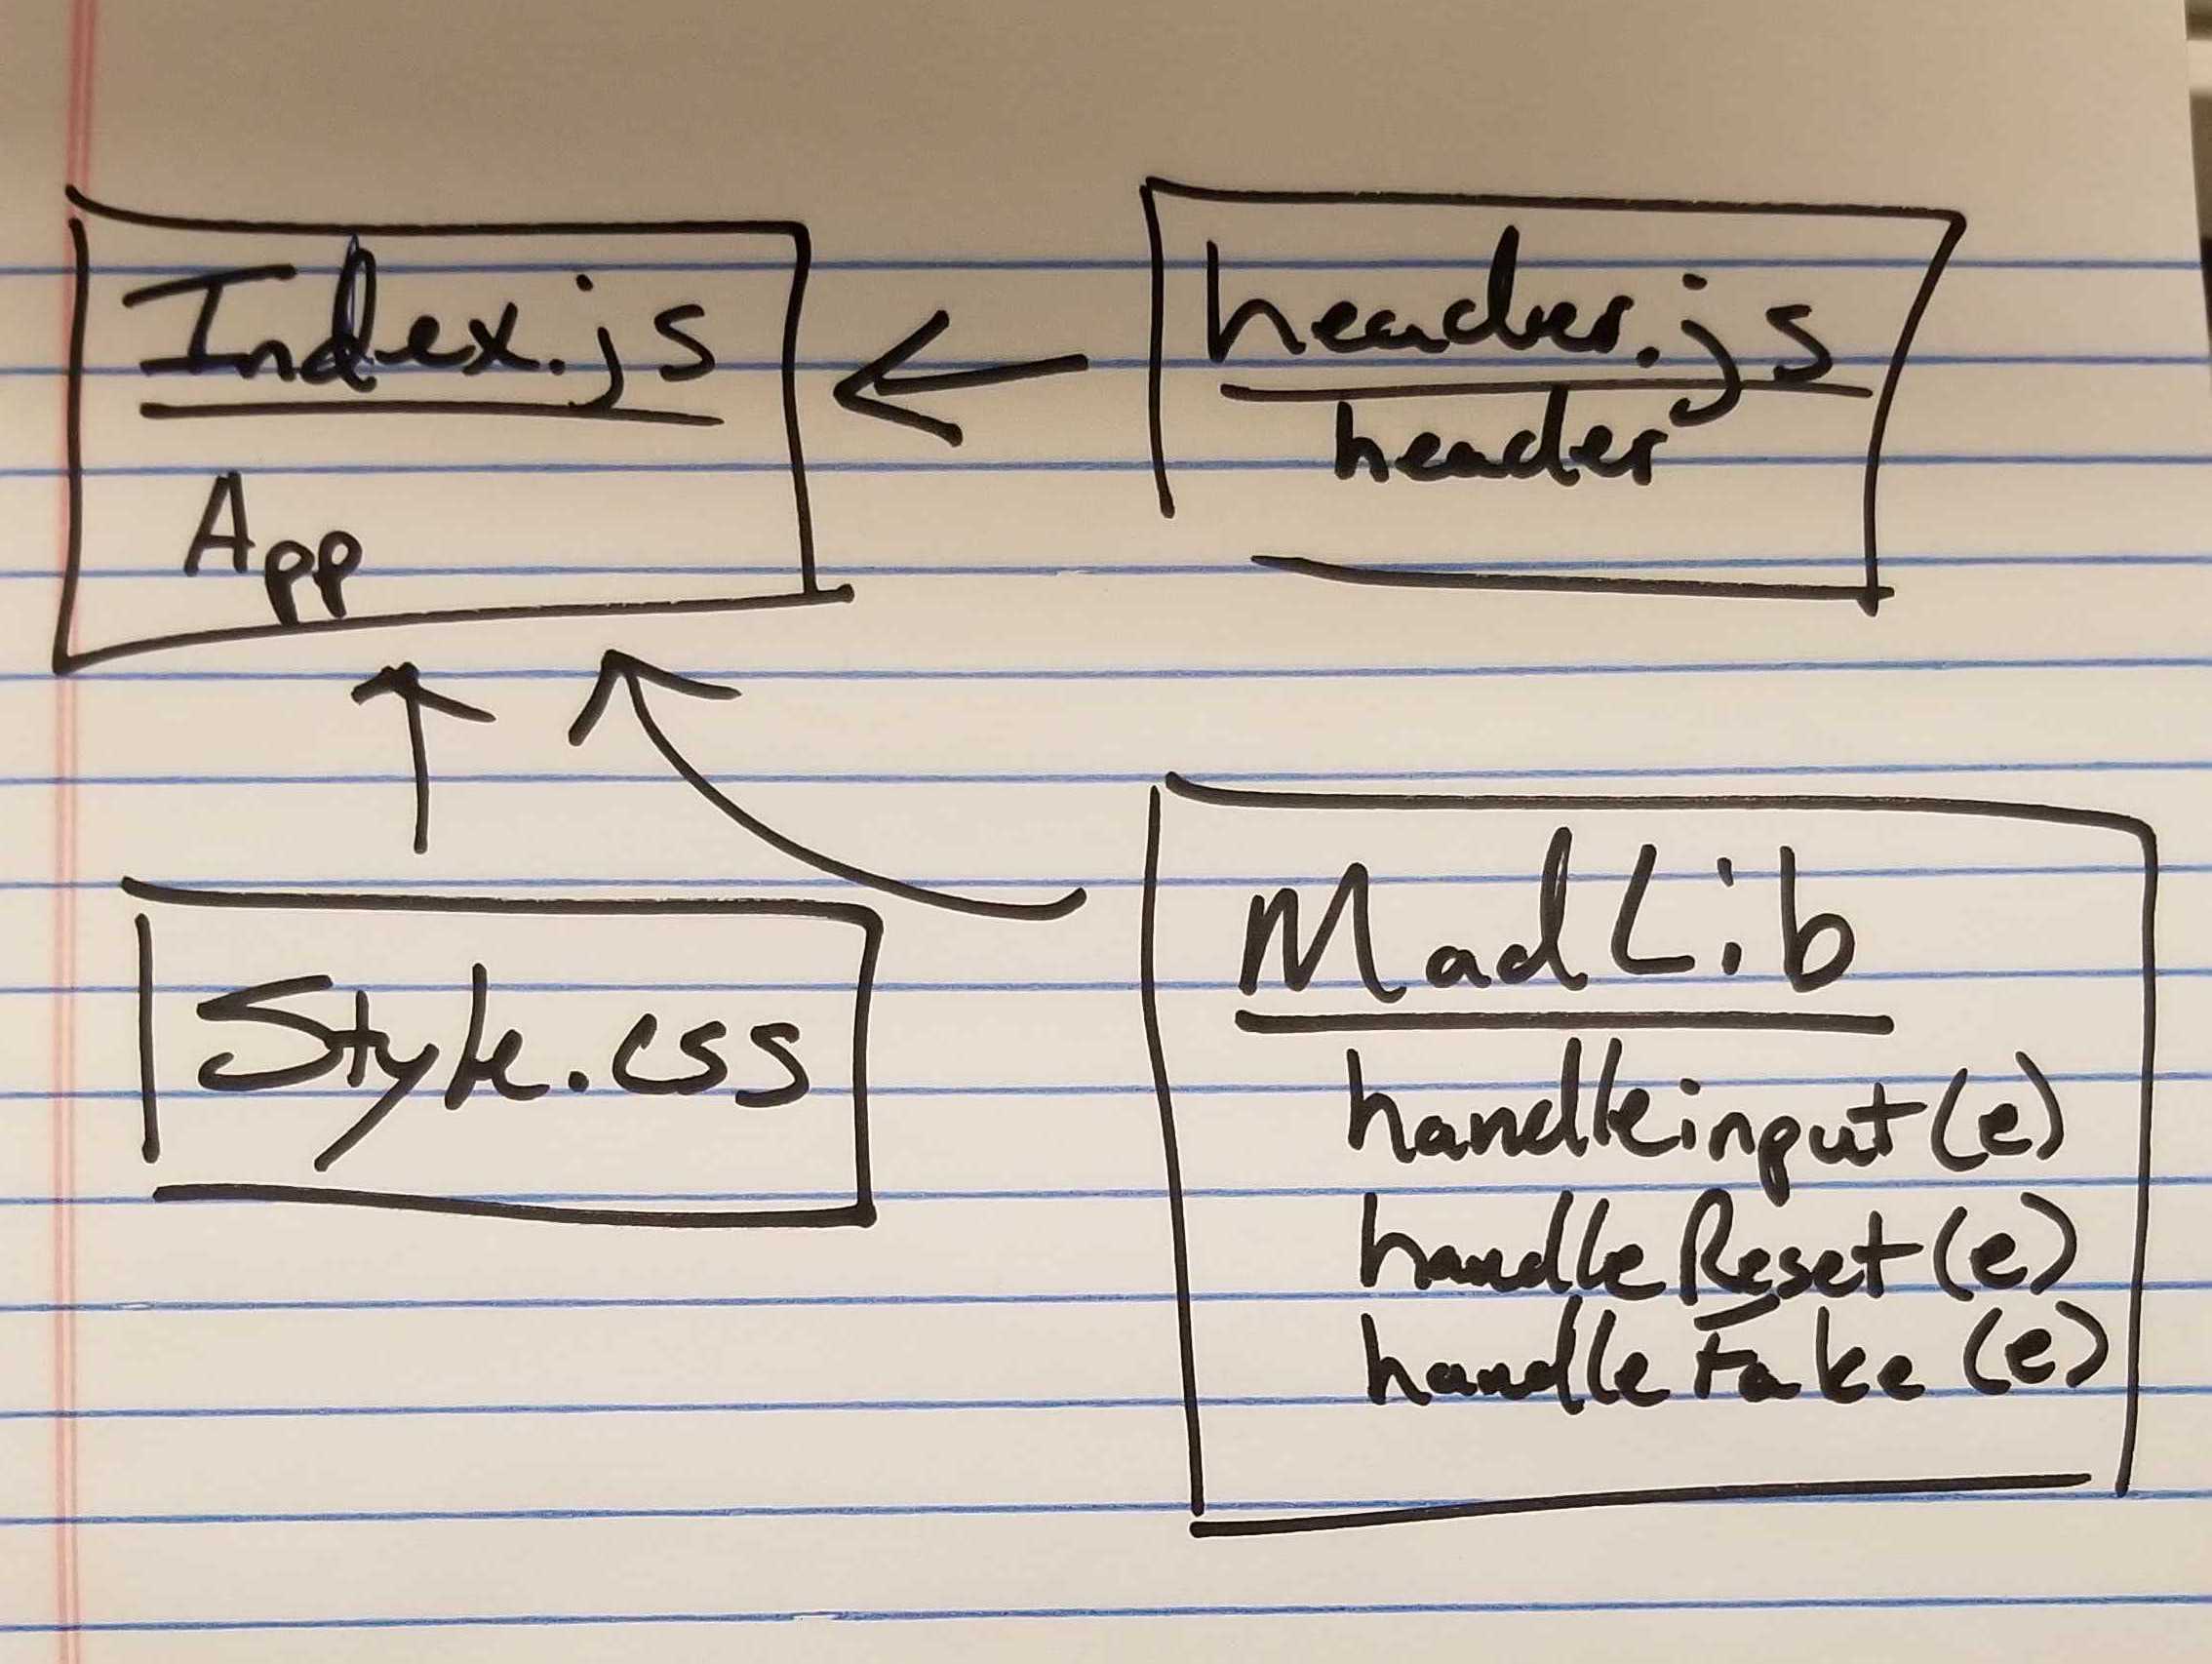 Index.js
App
header.js
header
Style.css
MadLib
handleinput(e)
handleReset(e)
handleFake(e)